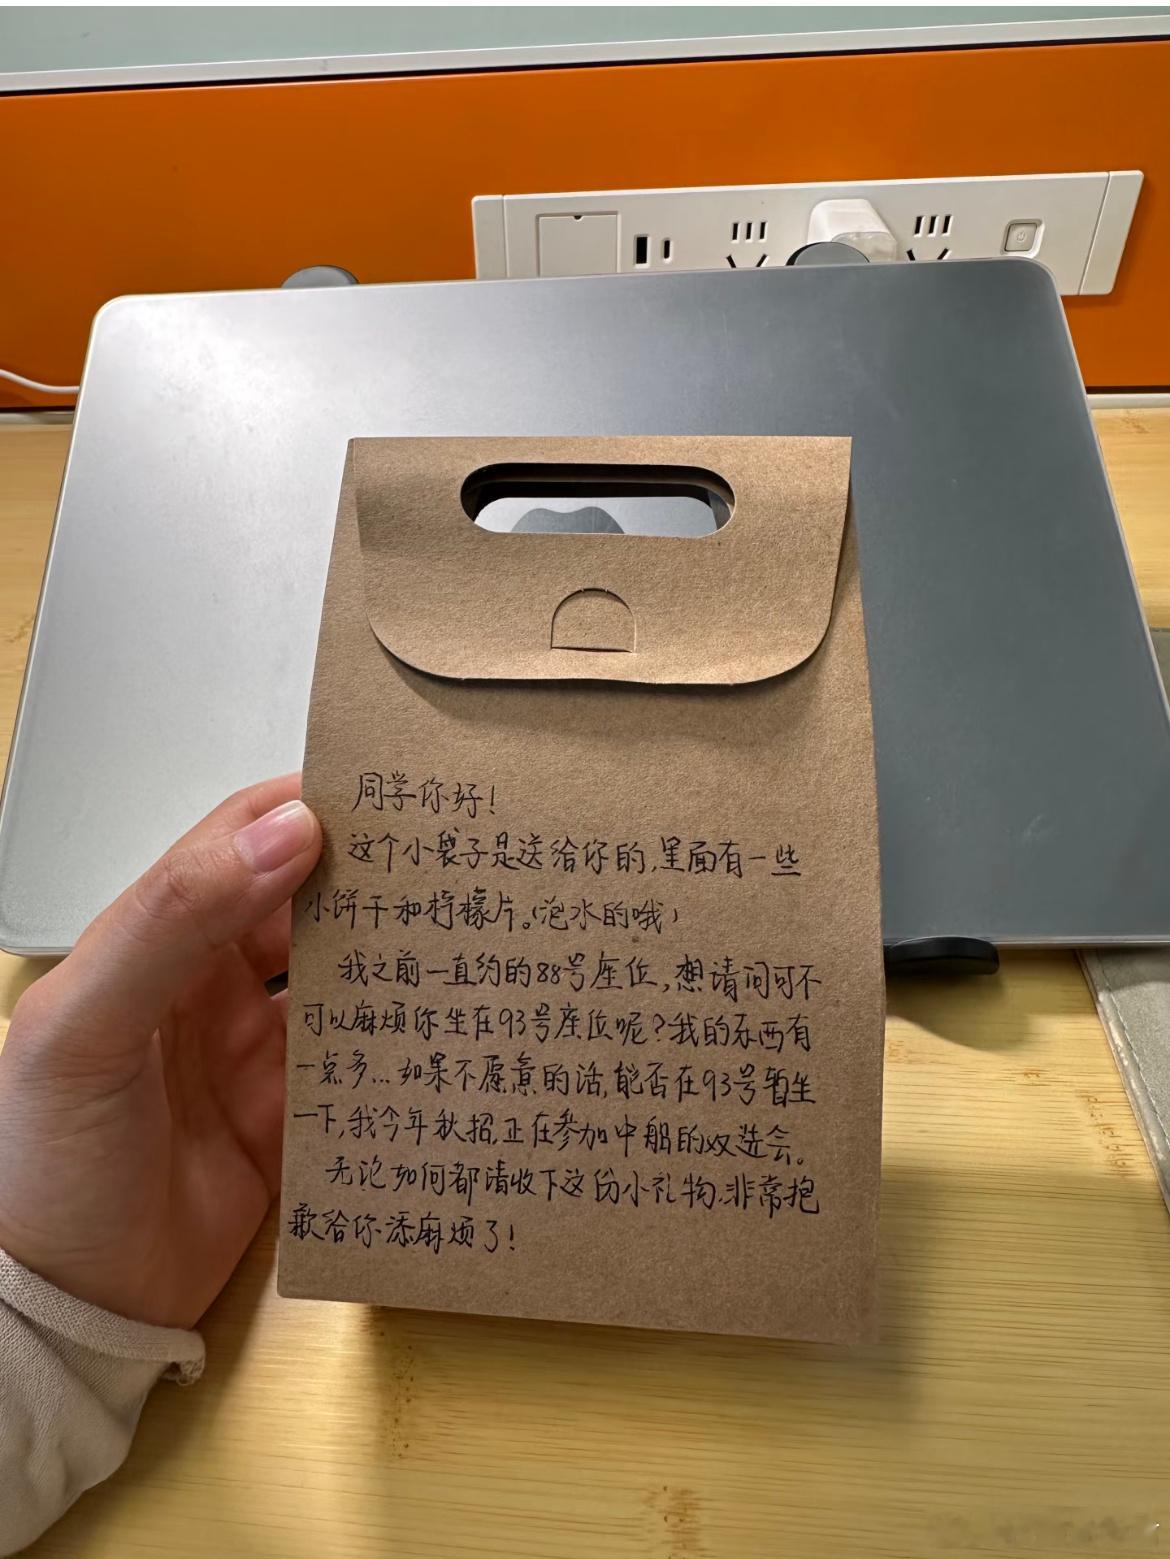 同学你好！
这个小袋子是送给你的，里面有一些
小饼干和柠檬片。（泡水的哦）
我之前一直约的88号座位，想请问可不
可以麻烦你坐在93号座位呢？我的东西有
一点多...如果不愿意的话，能否在93号暂坐
一下，我今年秋招，正在参加中船的双选会。
无论如何都请收下这份小礼物，非常抱
歉给你添麻烦了！